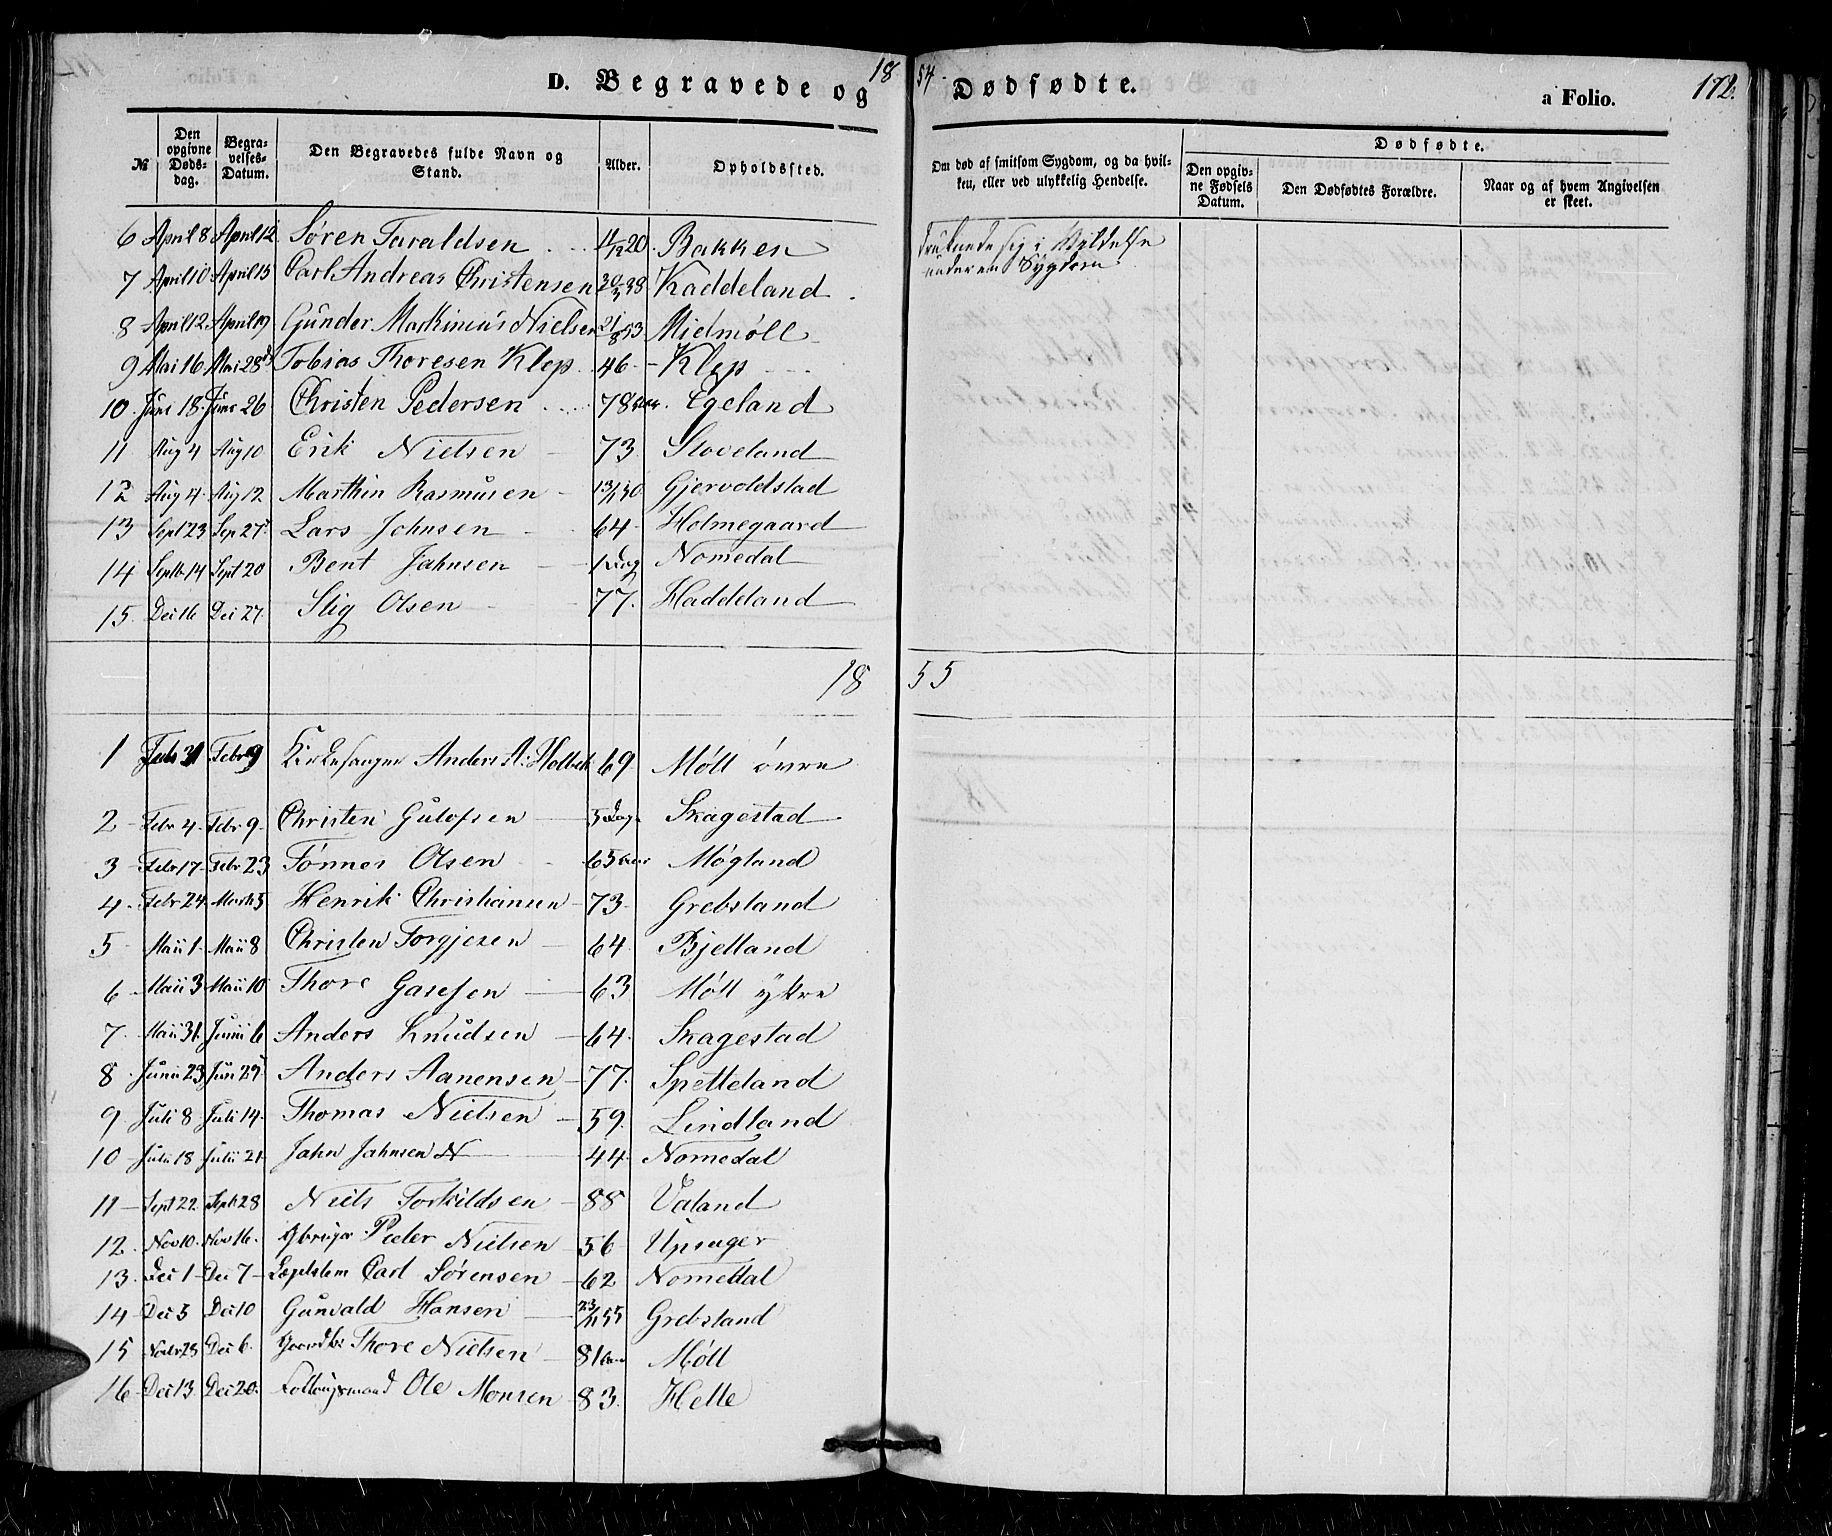 D. Begravede og 18 54 Dødfødte. a Folio. 172.
№
Den opgivne Døds-dag.
Begra-velses-Datum.
Den Begravedes fulde Navn og Stand.
Alder.
Opholdssted.
Om død af smitsom Sygdom, og da hvil-ken, eller ved ulykkelig Hendelse.
Dødfødte.
Den opgiv-ne Fødsels Datum.
Den Dødfødtes Forældre.
Naar og af hvem Angivelsen er skeet.
6 April 8 April 12 Søren Taraldsen Bakken druknede sig i Vildelse
under en Sygdom
7 April 10 April 15 Carl Andreas Christensen Kaddeland
8 April 12 April 19 Gunder Markinius Nielsen Midmøll
9 Mai 16 Mai 28 Tobias Thoresen Klep 46 Klep
10 Juni 18 Juni 26 Christen Pedersen 78 Egeland
11 Aug 4 Aug 10 Erik Nielsen 73 Stoveland
12 Aug 4 Aug 12 Marthin Rasmusen Gjervoldstad
13 Sept 23 Sep 27 Lars Johnsen 64 Holmegaard
14 Septb 14 Sept 20 Bent Jahnsen 1 Dag Nomedal
15 Dec 16 Dec 27 Stig Olsen 77 Haddeland
18 55
1 Febr 9 Kirkesanger Anders A: Holbek 69 Møll øvre
2 Febr 4 Febr 9 Christen Gulofsen 5 Dage Skagestad
3 Febr 17 Febr 23 Tønnes Olsen 65 Møgland
4 Febr 24 Marts 5 Henrik Christiansen 73 Grebsland
5 Maii 1 Maii 8 Christen Torgjesen 64 Bjelland
6 Maii 3 Maii 10 Thore 63 Møll ytre
7 Maii 31 Junii 6 Anders Knudsen 64 Skagestad
8 Junii 23 Juni 29 Anders Aanensen 77 Spetteland
9 Juli 8 Juli 14 Thomas Nielsen 59 Lindland
10 Julii 18 Julii 21 Jahn Jahnsen N 44 Nomedal
11 Sept 22 Sept 28 Niels Torkildsen 88 Valand
12 Nov 10 Nov 16 Peder Nielsen 56 Upsager
13 Dec 1 Dec 7 Lægdslem Carl Sørensen 62 Nomedal
14 Dec 5 Dec 10 Gunvald Hansen Grebsland
15 Novbr 28 Dec 6 Thore Nielsen 81 Møll
16 Dec 13 Dec 20 Ole Monsen 83 Helle